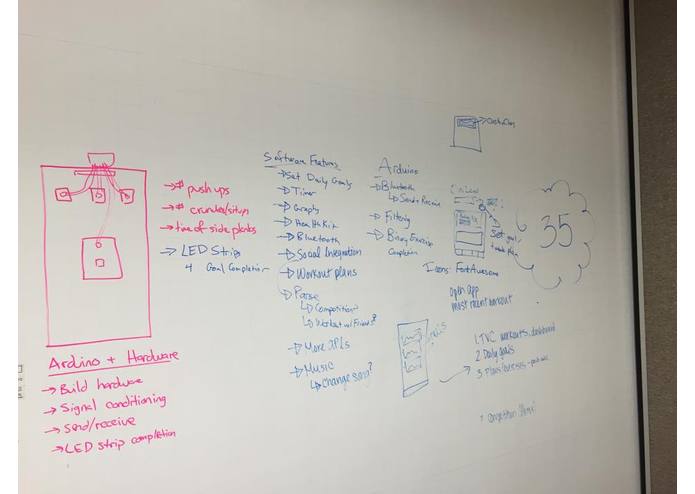 → # pushups
→ # crunches/situps
→ time of side planks
→ LED Strip
↳ Goal Completion
Arduino + Hardware
→ Build hardware
→ Signal conditioning
→ send/receive
→ LED strip completion
Software Features
→ Set Daily Goals
→ Timer
→ Graphs
→ HealthKit
→ Bluetooth
→ Social Integration
→ Workout plans
→ Parse
↳ Competition?
↳ Workout w/ Friends?
→ More APIs
→ Music
↳ Change song?
Arduino
→ Bluetooth
↳ Send + Receive
→ Filtering
→ Binary Exercise
Completion
Set goal/
35
Icons: FontAwesome
open app
most recent workout
goals
1. TVC workouts, dashboard
2 Daily goals
3